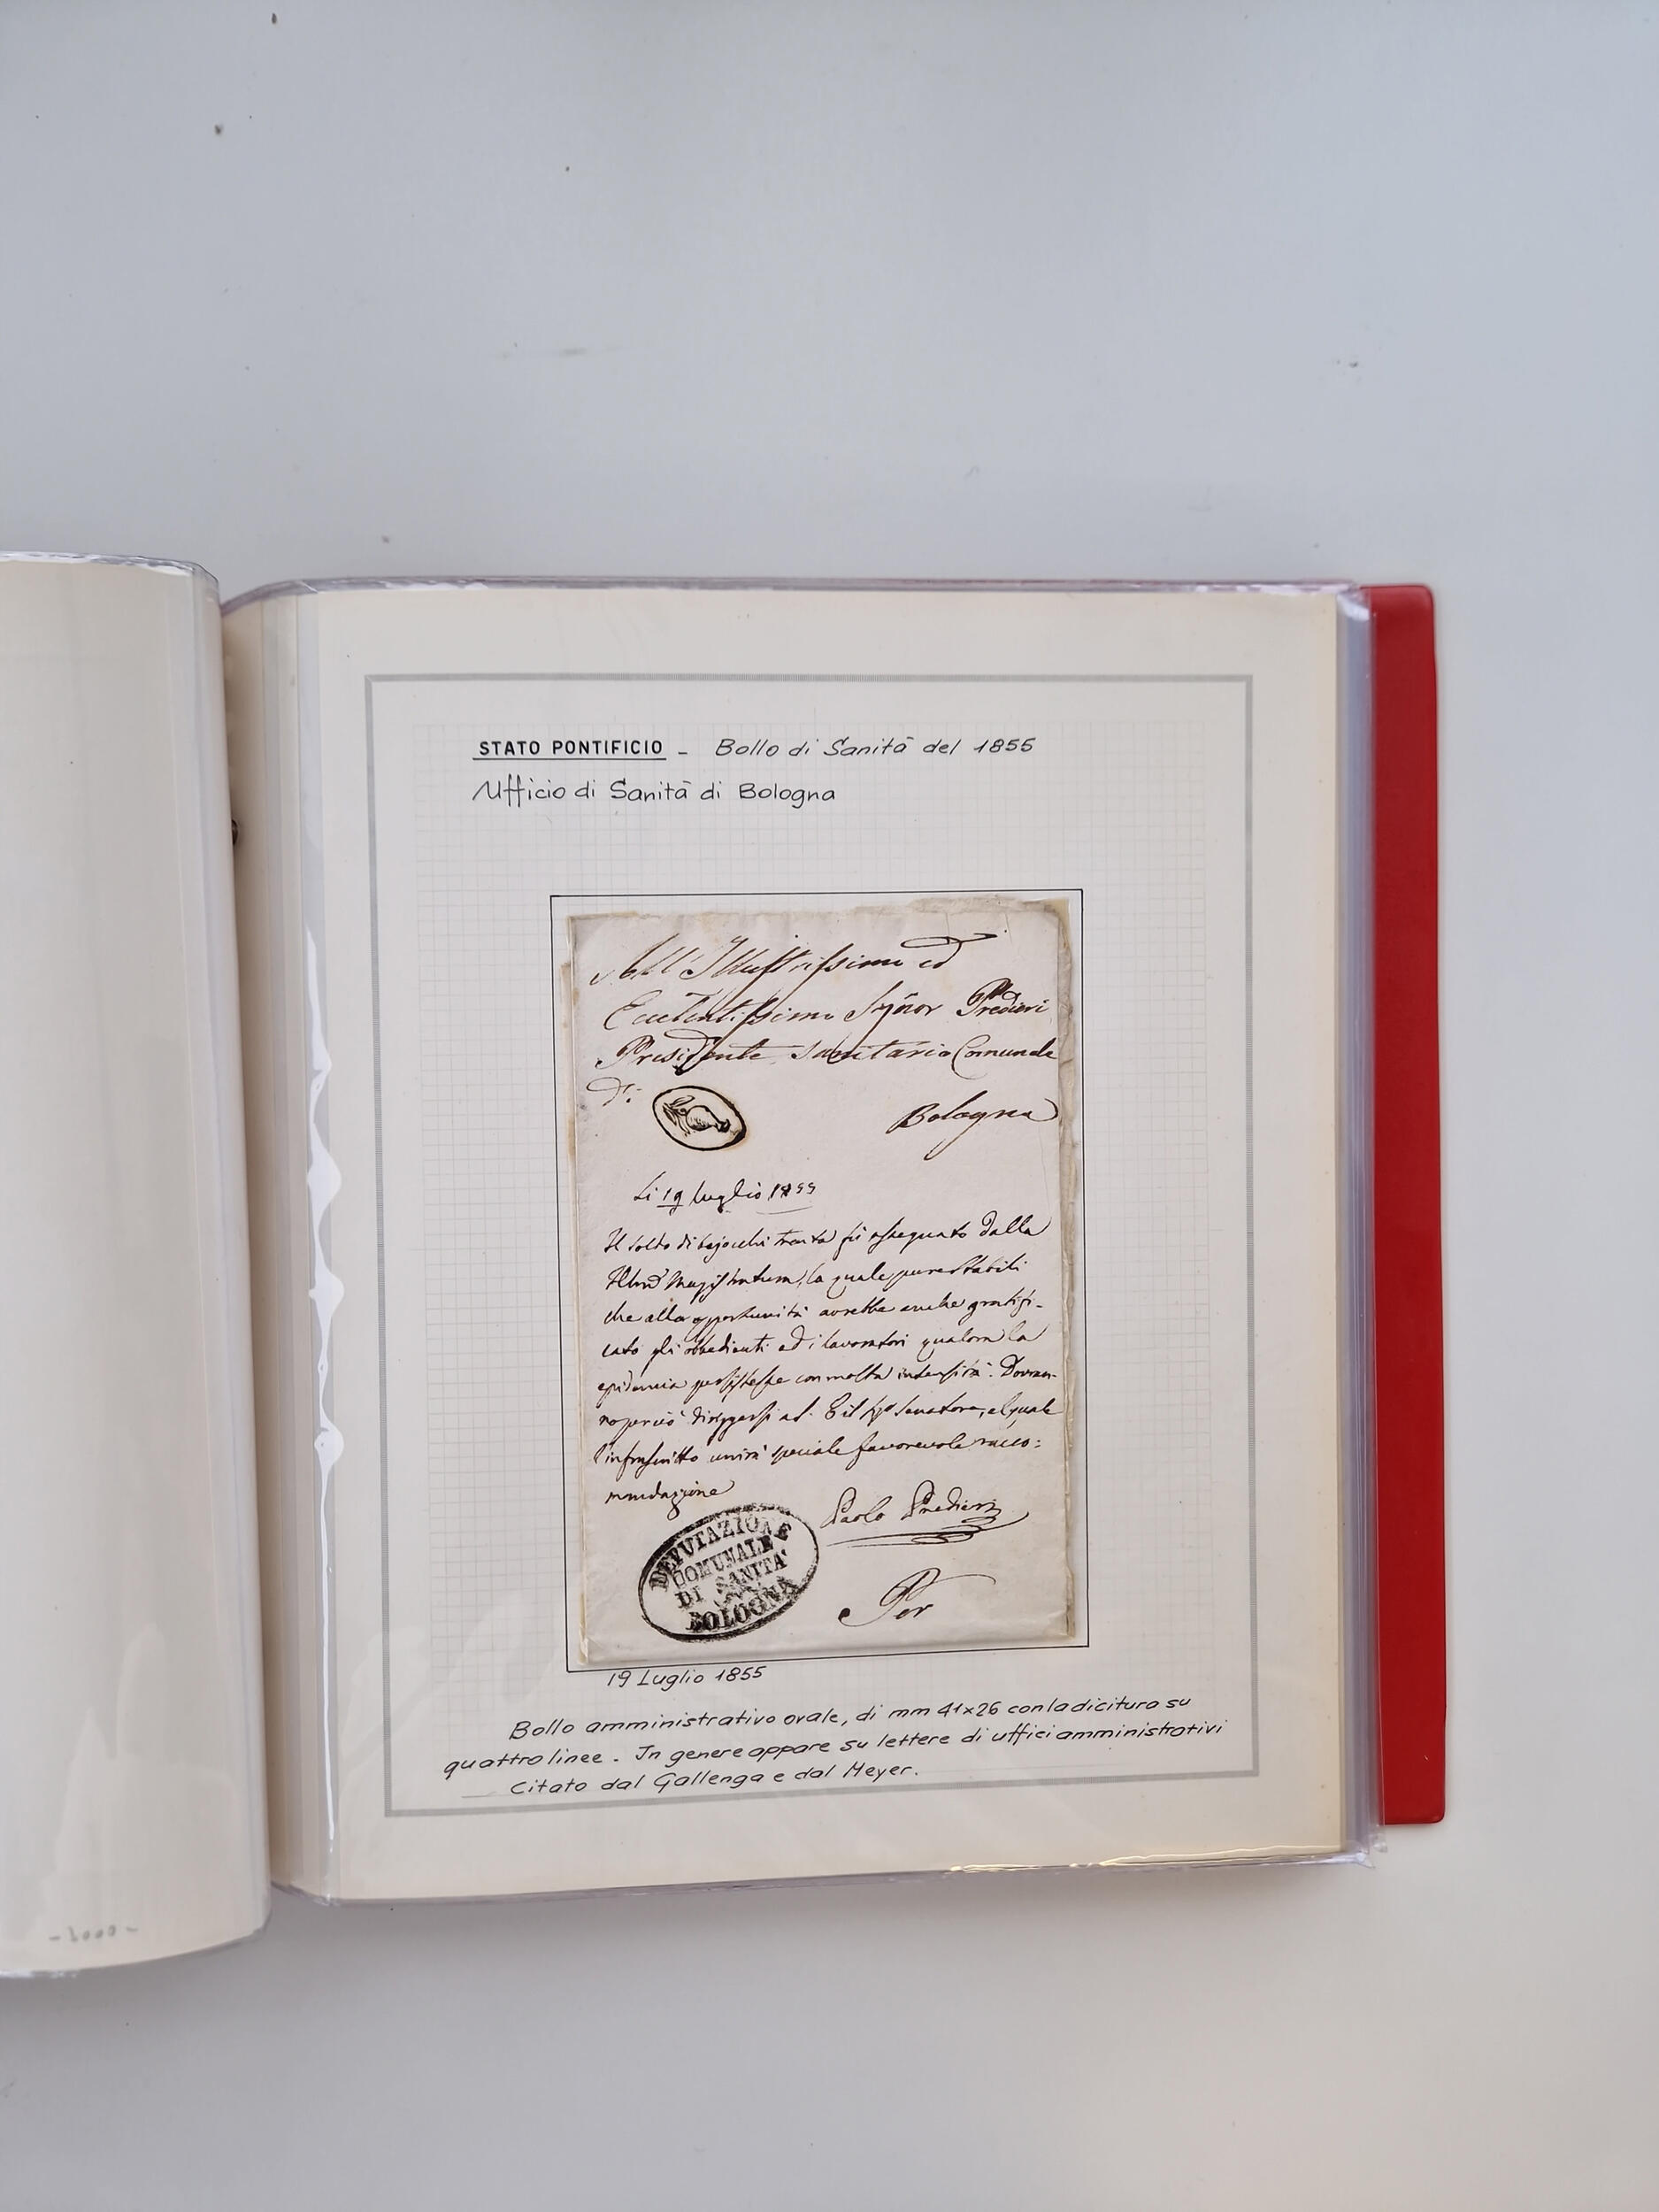 STATO PONTIFICIO - Bollo di Sanità del 1855
Ufficio di Sanità di Bologna
All'Illustrissimo ed
Eccellentissimo Signor Predieri
Presidente sanitario Comunale
Di
Bologna
Li 19 luglio 1855
Il soldo di bajocchi trenta fù assegnato dalla
Magistratura, la quale pure stabilì
che alla opportunità avrebbe anche gratifi-
cato gli obbedienti ed i lavoratori qualora la
epidemia persistesse con molta intensità. Dovran-
no perciò diriggersi Senatore, al quale
l'infrascritto unirà speciale favorevole racco=
mandazione
Paolo Predieri
DEPUTAZIONE
COMUNALE
DI SANITA'
BOLOGNA
Per
19 Luglio 1855
Bollo amministrativo ovale, di mm 41x26 con la dicitura su
quattro linee. In genere appare su lettere di uffici amministrativi
Citato dal Gallenga e dal Meyer.